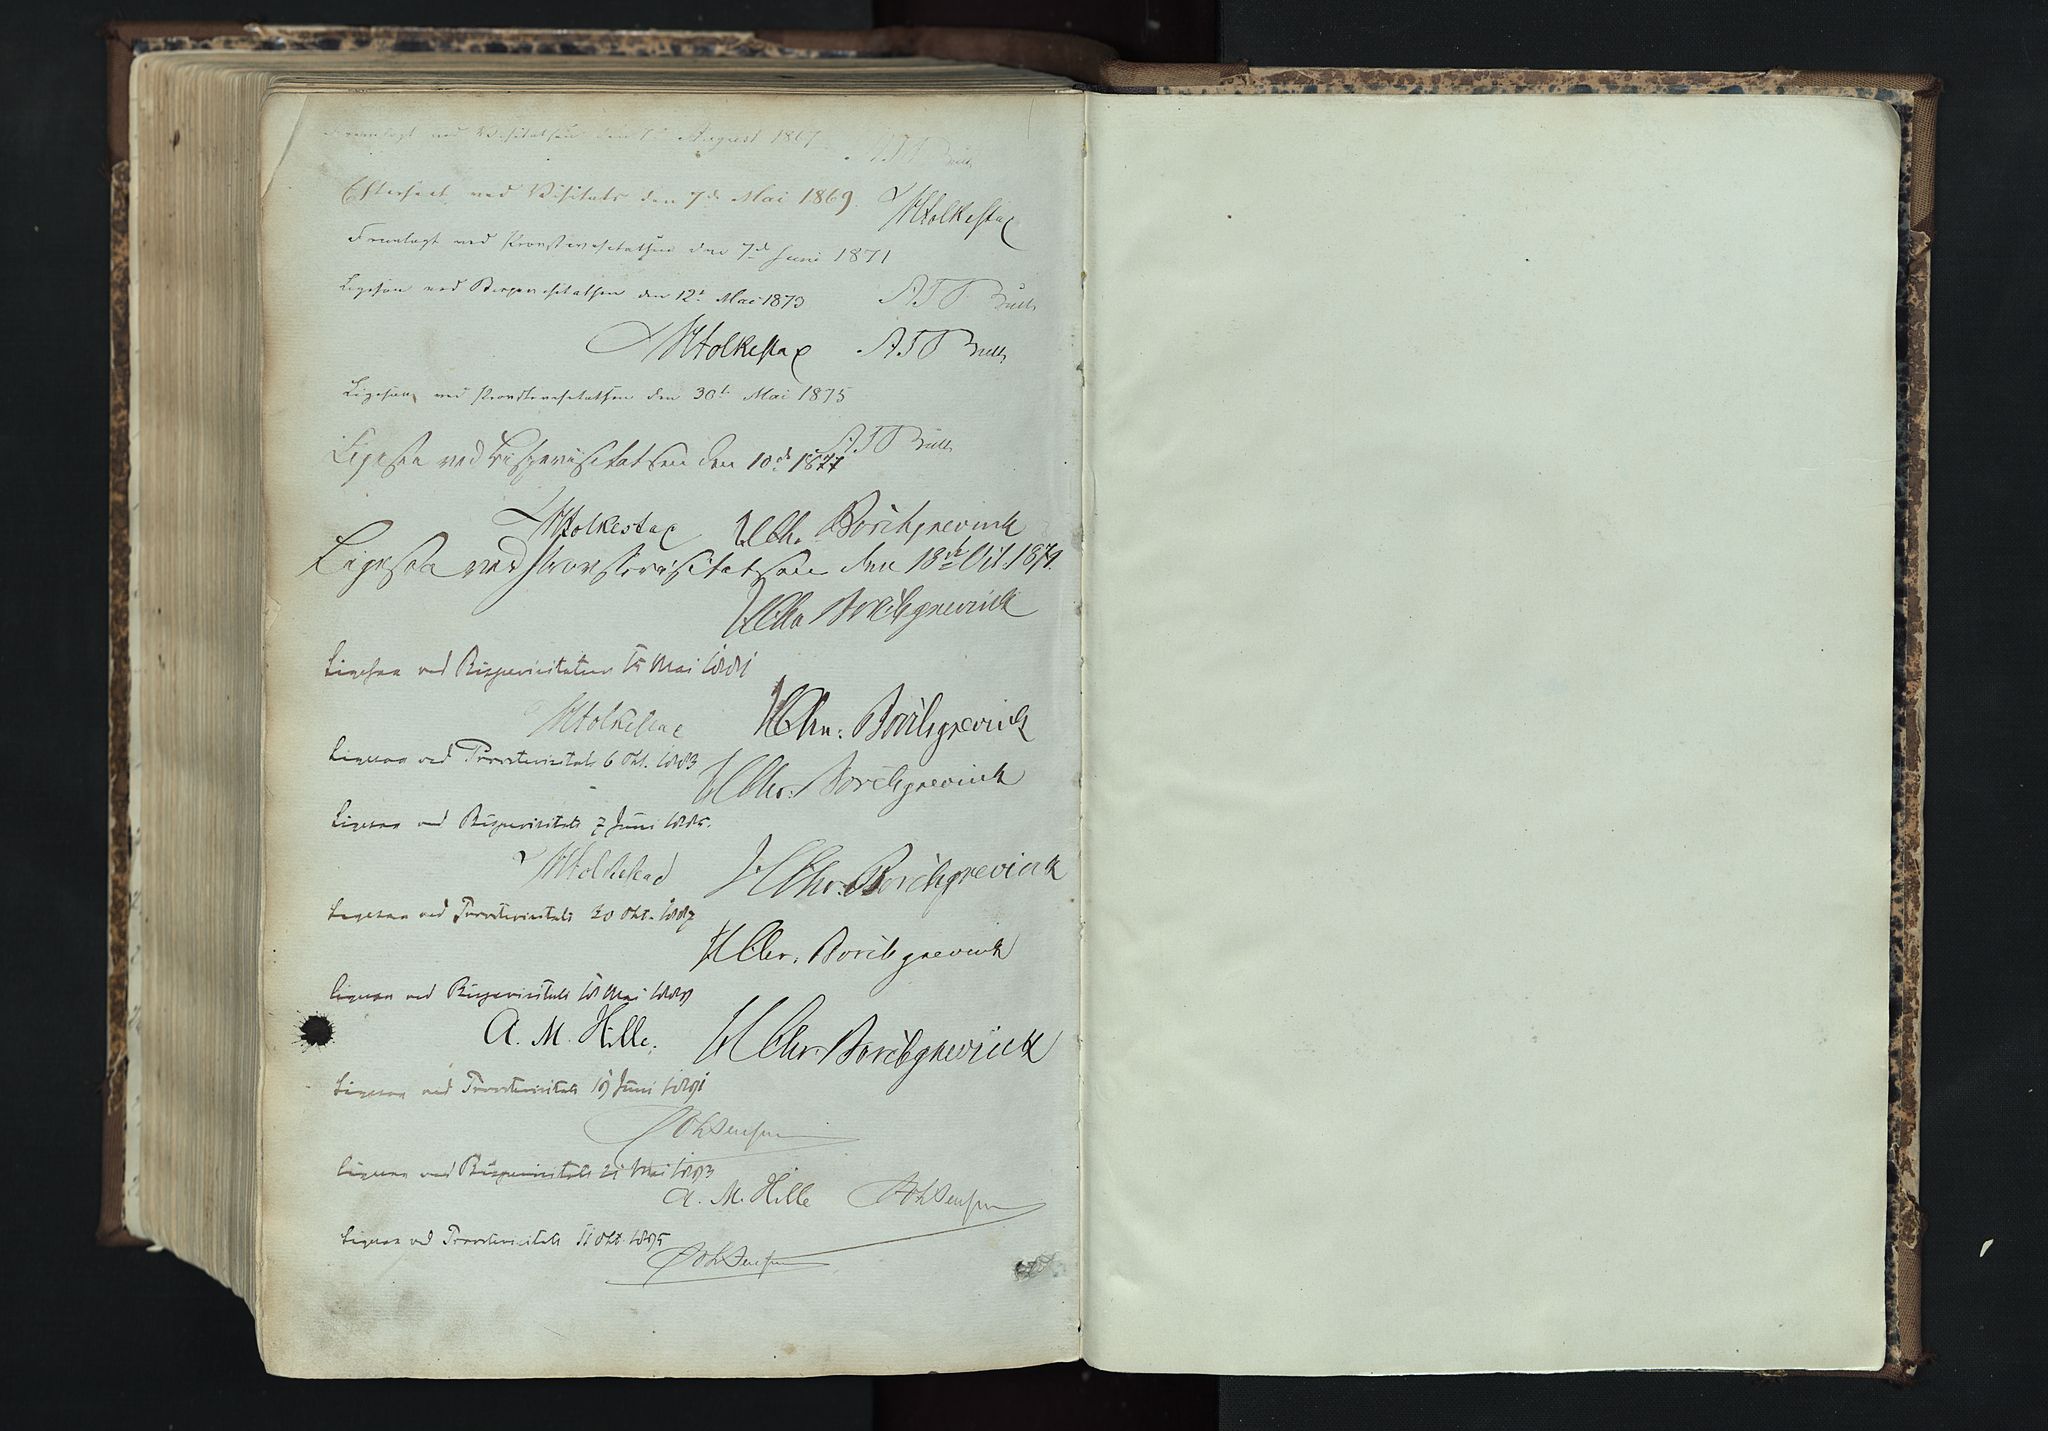 Fremlagt ved Visitatsen den 7de August 1867
A T F Bull
Efterseet ved Visitats den 7de Mai 1869.
H Folkestad
Fremlagt ved Provstevisitatsen den 7de Juni 1871
A T F Bull
Ligesaa ved Bispevisitatsen den 12te Mai 1873
H Folkestad A T F Bull
Ligesaa ved Provstevisitatsen den 30te Mai 1875
A T F Bull
Ligesaa ved Bispevisitatsen den 10de 1877
H Folkestad H Chr. Borchgrevink
Ligesaa ved Provstevisitatsen den 18de Oct. 1879.
H Chr Borchgrevink
Ligesaa ved Bispevisitatsen 15 Mai 1881
H Folkestad H Chr. Borchgrevink
Ligesaa ved Provstevisitats 6 Okt. 1883
H Chr. Borchgrevink
Ligesaa ved Bispevisitats 7 Juni 1885.
H Folkestad H Chr. Borchgrevink
Ligesaa ved Provstevisitats 20 Okt. 1887
H Chr. Borchgrevink
Ligesaa ved Bispevisitats 18 Mai 1889
A. M. Hille. H Chr. Borchgrevink
Ligesaa ved Provstevisitats 19 Juni 1891
Ligesaa ved Bispevisitats 21 Mai 1893
A. M. Hille
Ligesaa ved Provstevisitats 11 Okt. 1895